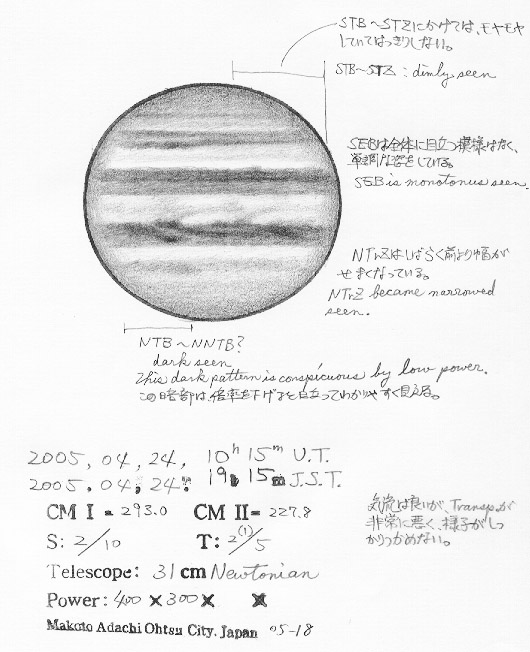 STB～STZにかけては、モヤモヤ
していてはっきりしない。
STB～STZ : dimly seen
SEBは全体に目立つ模様はなく、
単調な姿をしている。
SEB is monotonus seen
NTrZはしばらく前より幅が
せまくなっている。
NTrZ became narrowed
seen.
NTB～NNTB?
dark seen
This dark pattern is conspicuous by low power.
この暗部は、倍率を下げると目立ってわかりやすく見える。
2005, 04, 24, 10h 15m U.T.
2005. 04; 24: 19h 15m J.S.T.
CM I = 293.0 CM II= 227.8
S: 2/10 T: 2(1)/5
Telescope: 31 cm Newtonian
Power: 400 × 300 × ×
Makoto Adachi Ohtsu City. Japan 05-18
気流は良いが、Transp.が
非常に悪く、様子がしっ
かりつかめない。